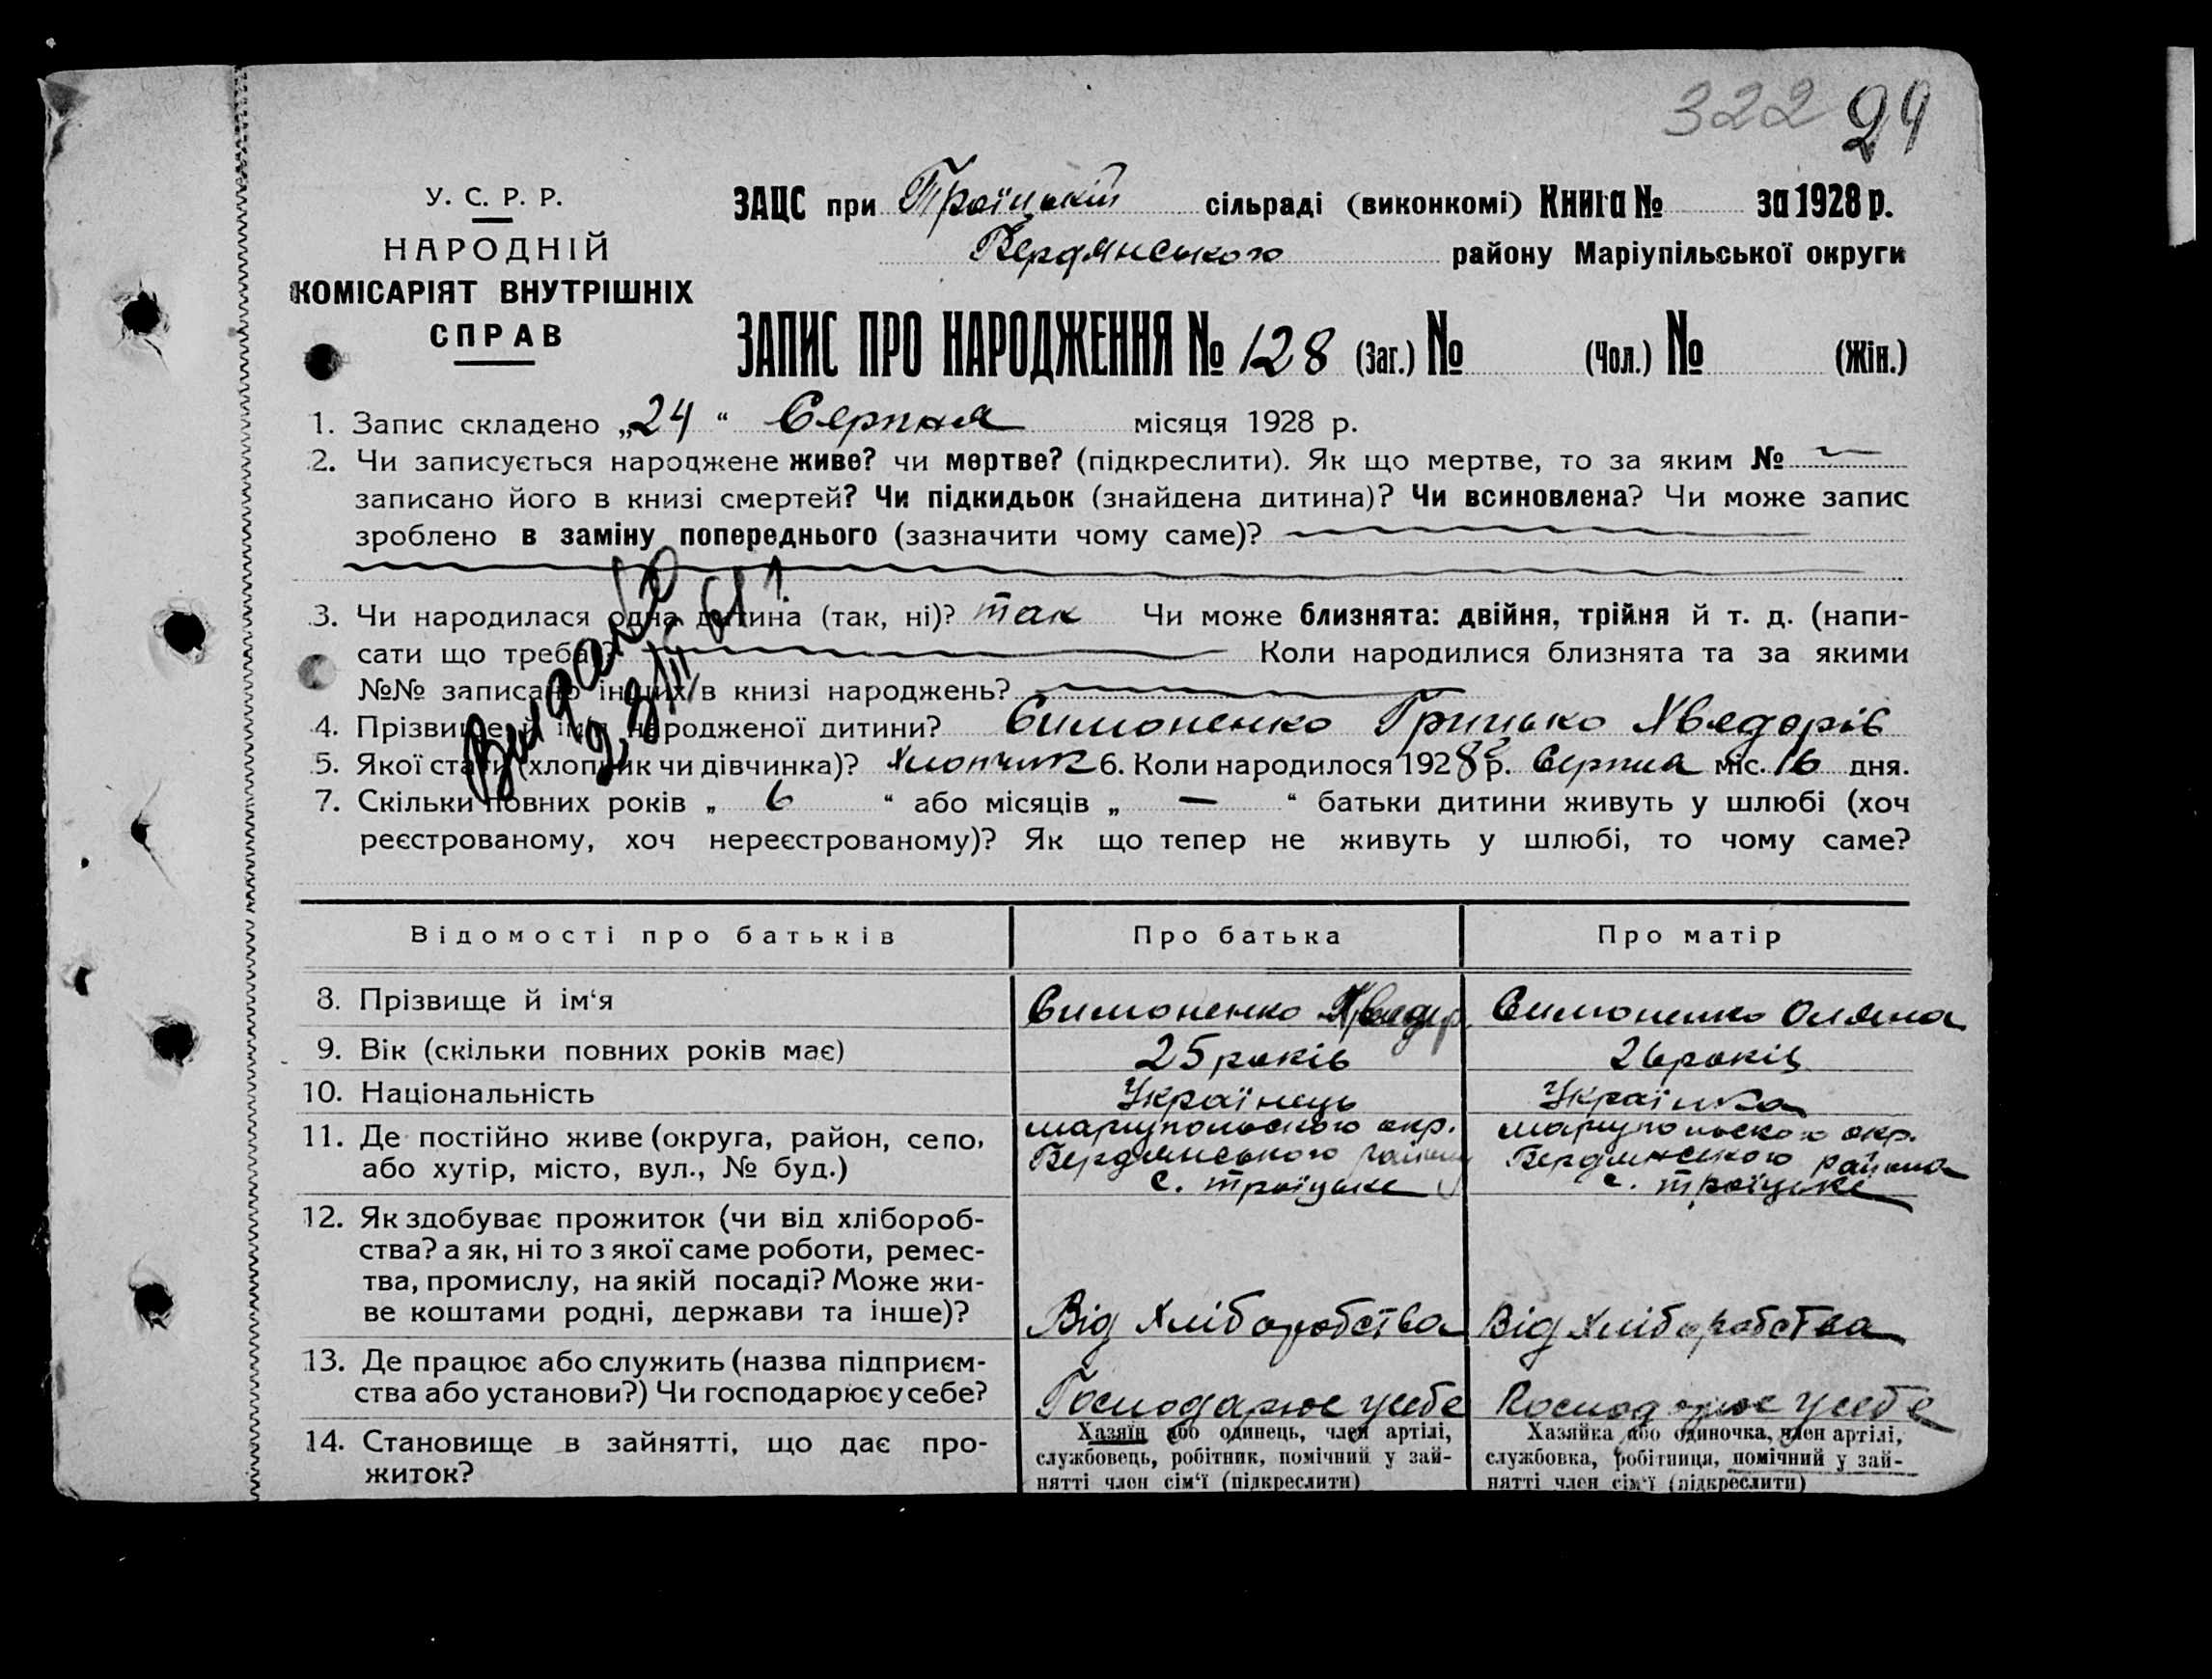 322 29
У. С. Р. Р.
НАРОДНІЙ
КОМІСАРІЯТ ВНУТРІШНІХ
СПРАВ
ЗАЦС при Троїцькій сільраді (виконкомі) Книга № за 1928 р.
Бердянського району Маріупільської округи
ЗАПИС ПРО НАРОДЖЕННЯ № 128 (Заг.) № (Чол.) № (Жін.)
1. Запис складено „24“ Серпня місяця 1928 р.
2. Чи записується народжене живе? чи мертве? (підкреслити). Як що мертве, то за яким №
записано його в книзі смертей? Чи підкидьок (знайдена дитина)? Чи всиновлена? Чи може запис
зроблено в заміну попереднього (зазначити чому саме)?
3. Чи народилася одна дитина (так, ні)? так Чи може близнята: двійня, трійня й т. д. (напи-
сати що треба)? Коли народилися близнята та за якими
№№ записано інших в книзі народжень?
4. Прізвище й ім'я народженої дитини? Симоненко Грицько Хведорів
5. Якої стати (хлопчик чи дівчинка)? Хлопчик 6. Коли народилося 1928 р. Серпня міс. 16 дня.
7. Скільки повних років „ 6 “ або місяців „ — “ батьки дитини живуть у шлюбі (хоч
реєстрованому, хоч нереєстрованому)? Як що тепер не живуть у шлюбі, то чому саме?
Відомості про батьків Про батька Про матір
8. Прізвище й ім‘я Симоненко Хведір Симоненко Оляна
9. Вік (скільки повних років має) 25 років 26 років
10. Національність Українець Українка
11. Де постійно живе (округа, район, село,
або хутір, місто, вул., № буд.)
маріупольского окр.
Бердянського району
с. троїцьке
маріупольского окр.
Бердянського района
с. троїцьке
12. Як здобуває прожиток (чи від хлібороб-
ства? а як, ні то з якої саме роботи, ремес-
тва, промислу, на якій посаді? Може жи-
ве коштами родні, держави та інше)?
Від Хліборобства Від Хліборобства
13. Де працює або служить (назва підприєм-
ства або установи?) Чи господарює у себе?
Господарює у себе Господарює у себе
14. Становище в зайнятті, що дає про-
житок?
Хазяїн або одинець, член артілі,
службовець, робітник, помічний у зай-
нятті член сім‘ї (підкреслити)
Хазяйка або одиночка, член артілі,
службовка, робітниця, помічний у зай-
нятті член сім‘ї (підкреслити)